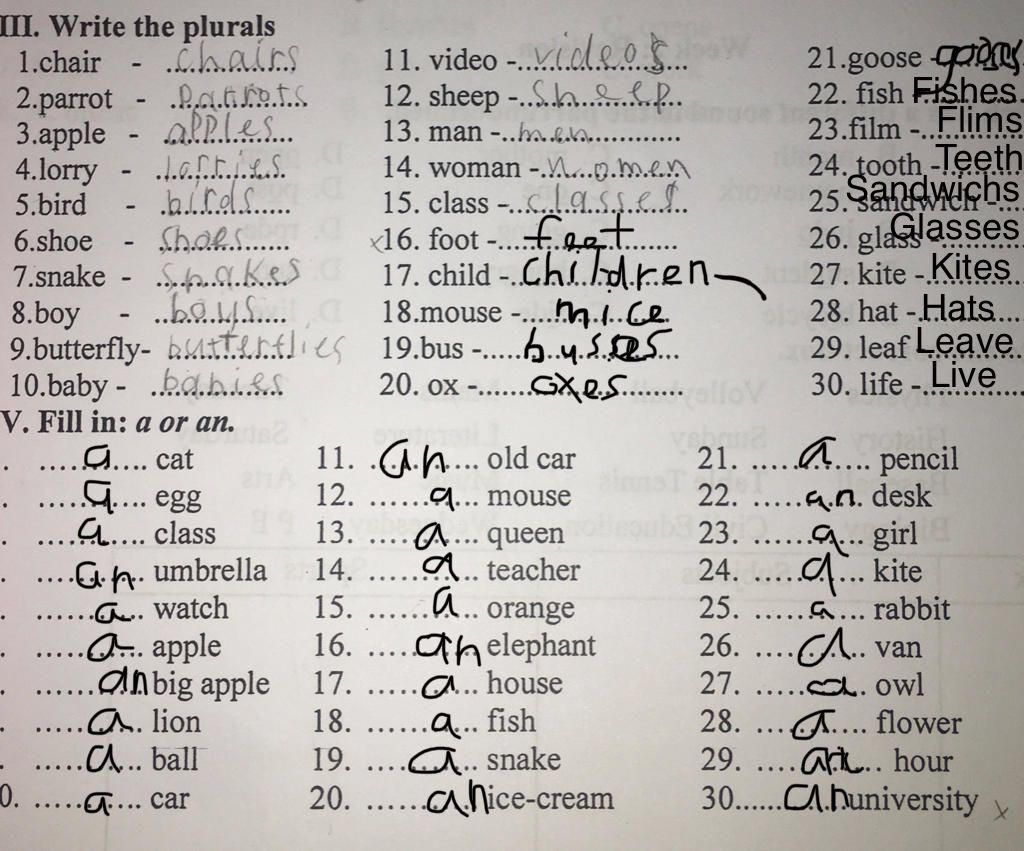 III. Write the plurals
1.chair - chairs 11. video - videos 21.goose -
2.parrot - parrots 12. sheep - sheep 22. fish Fishes
3.apple - apples 13. man - men 23.film - Flims
4.lorry - lorries 14. woman - women 24. tooth - Teeth
5.bird - birds 15. class - classes 25. sandwich - Sandwichs
6.shoe - shoes x16. foot - feet 26. glass - Glasses
7.snake - snakes 17. child - children 27. kite - Kites
8.boy - boys 18.mouse - mice 28. hat - Hats
9.butterfly- butterflies 19.bus - busses 29. leaf Leave
10.baby - babies 20. ox - oxes 30. life - Live
V. Fill in: a or an.
. a cat 11. an old car 21. a pencil
. a egg 12. a mouse 22. an desk
. a class 13. a queen 23. a girl
. an umbrella 14. a teacher 24. a kite
. a watch 15. a orange 25. a rabbit
. a apple 16. an elephant 26. a van
. an big apple 17. a house 27. a owl
. a lion 18. a fish 28. a flower
. a ball 19. a snake 29. an hour
0. a car 20. an ice-cream 30. an university x